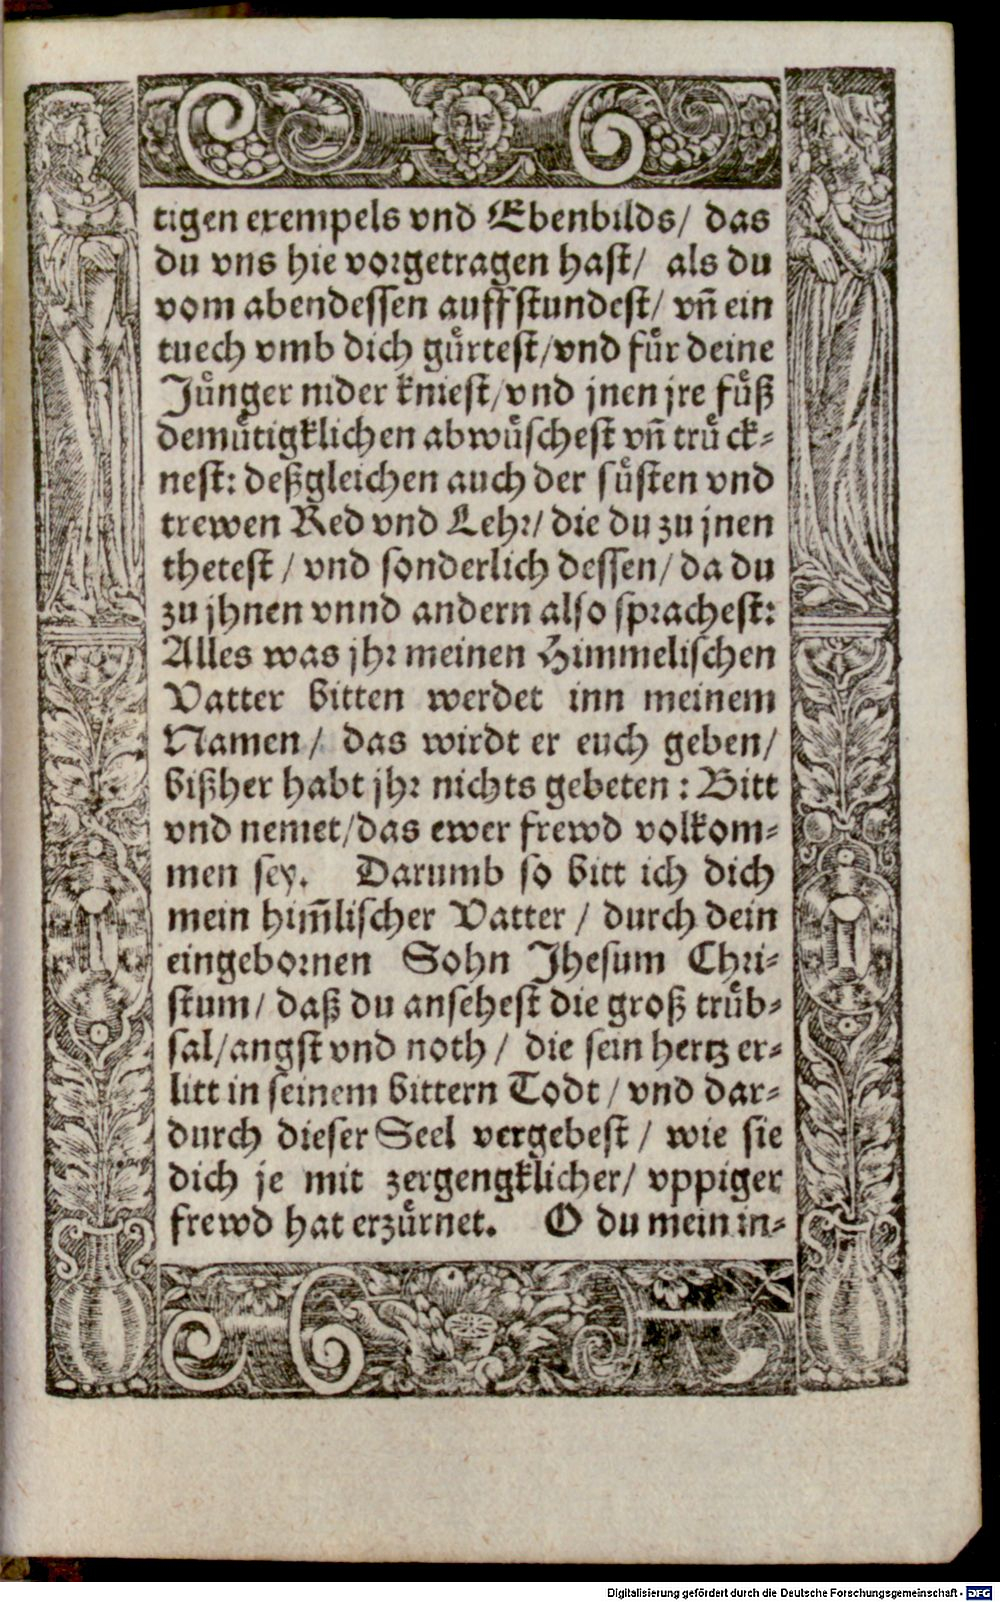 tigen exempels vnd Ebenbilds/ das
du vns hie vorgetragen hast/ als du
vom abendessen auffstundest/ vñ ein
tuech vmb dich gůrtest/vnd fůr deine
Jůnger nider kniest/vnd jnen jre fůß
demůtigklichen abwůschest vñ trůck-
nest: deßgleichen auch der sůsten vnd
trewen Red vnd Lehr/ die du zu jnen
thetest / vnd sonderlich dessen/ da du
zu jhnen vnnd andern also sprachest:
Alles was jhr meinen Himmelischen
Vatter bitten werdet inn meinem
Namen/ das wirdt er euch geben/
bißher habt jhr nichts gebeten : Bitt
vnd nemet/das ewer frewd volkom-
men sey. Darumb so bitt ich dich
mein him̃lischer Vatter / durch dein
eingebornen Sohn Jhesum Chri-
stum/ daß du ansehest die groß trůb-
sal/angst vnd noth / die sein hertz er-
litt in seinem bittern Todt / vnd dar-
durch dieser Seel vergebest / wie sie
dich je mit zergengklicher/ vppiger
frewd hat erzůrnet. O du mein in-
Digitalisierung gefördert durch die Deutsche Forschungsgemeinschaft - DFG